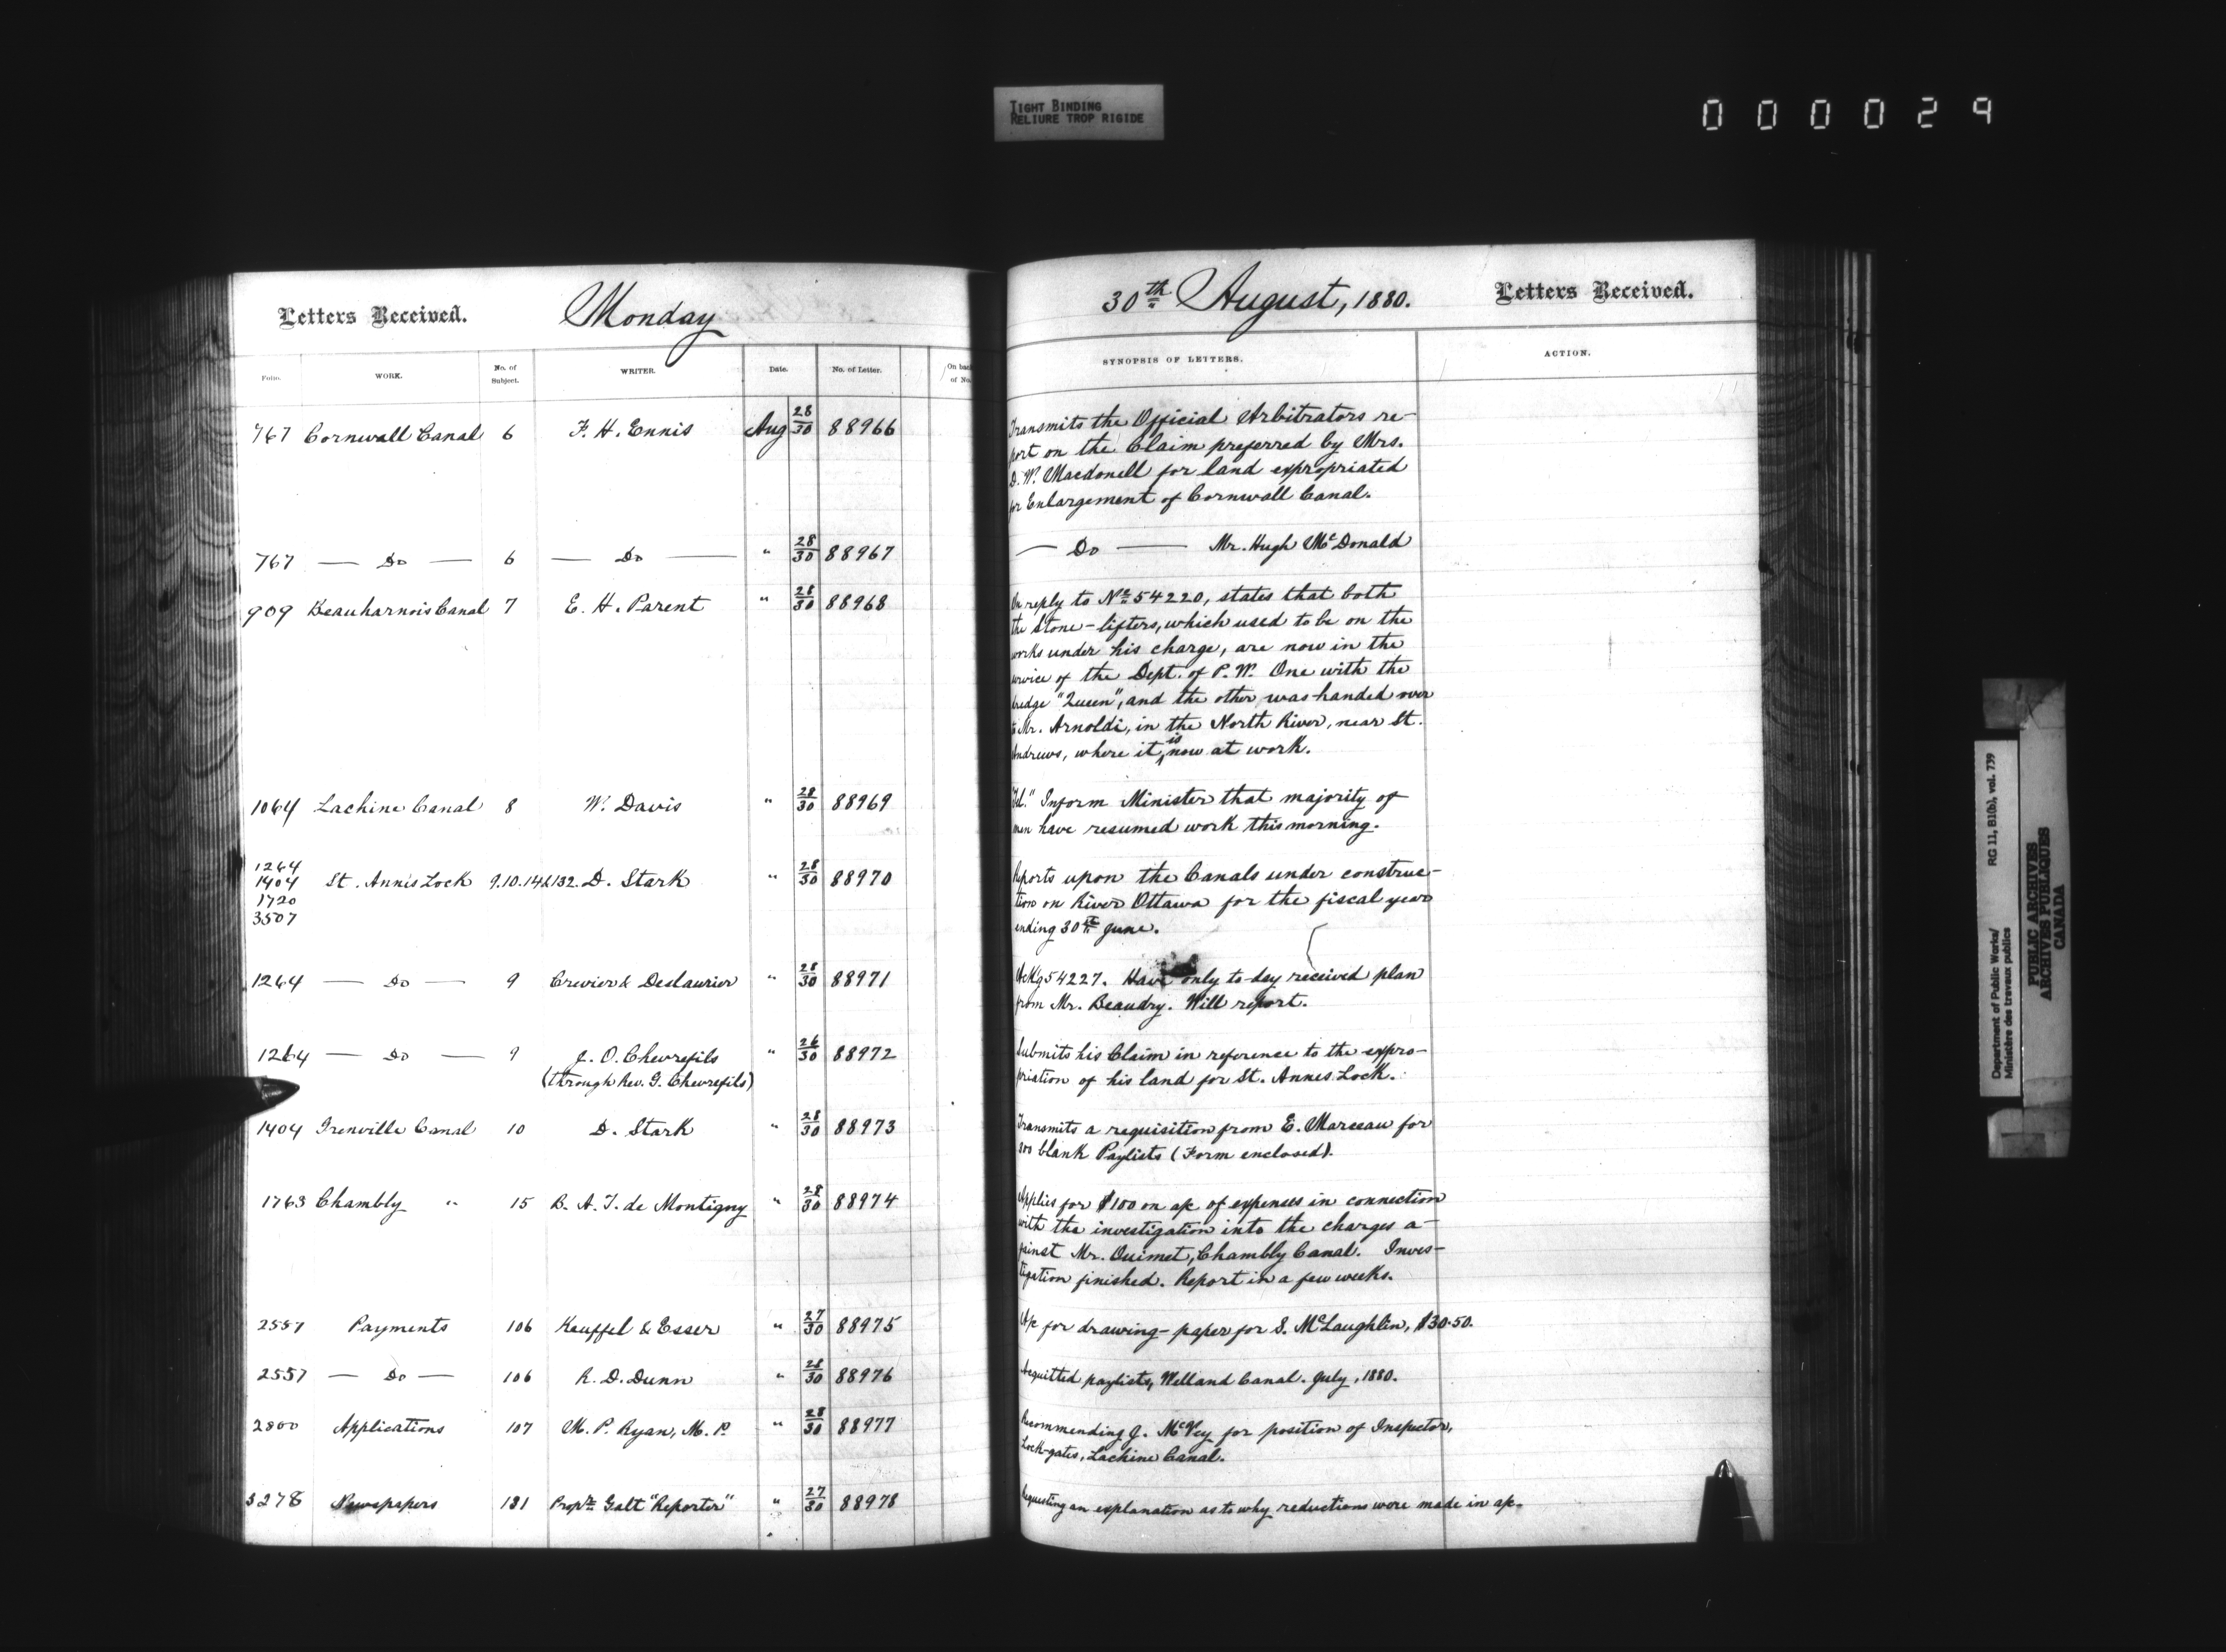 TIGHT BINDING
RELIURE TROP RIGIDE
000029
Letters Received. Monday
Folio. WORK. No. of Subject. WRITER. Date. No. of Letter. On back of No.
767 Cornwall Canal 6 F. H. Ennis Aug 28/30 88966
767 — Do — 6 — Do — " 28/30 88967
909 Beauharnois Canal 7 E. H. Parent " 28/30 88968
1064 Lachine Canal 8 W. Davis " 28/30 88969
1264
1404 St. Anne's Lock 9.10.14&132. D. Stark " 28/30 88970
1720
3507
1264 — Do — 9 Crevier & Deslaurier " 28/30 88971
1264 — Do — 9 J. O. Chevrefils " 26/30 88972
(through Rev. G. Chevrefils)
1404 Grenville Canal 10 D. Stark " 28/30 88973
1763 Chambly " 15 B. A. T. de Montigny " 28/30 88974
2557 Payments 106 Keuffel & Esser " 27/30 88975
2557 — Do — 106 R. D. Dunn " 28/30 88976
2800 Applications 107 M. P. Ryan, M. P. " 28/30 88977
3278 Newspapers 131 Proprs Galt "Reporter" " 27/30 88978
30th August, 1880. Letters Received.
SYNOPSIS OF LETTERS. ACTION.
Transmits the Official Arbitrators re-
port on the Claim preferred by Mrs.
D. W. Macdonell for land expropriated
for Enlargement of Cornwall Canal.
— Do — Mr. Hugh McDonald
In reply to No 54220, states that both
the stone-lifters, which used to be on the
works under his charge, are now in the
service of the Dept. of P. W. One with the
dredge "Queen", and the other was handed over
to Mr. Arnoldi, in the North River, near St.
Andrews, where it is now at work.
"Tel." Inform Minister that majority of
men have resumed work this morning.
Reports upon the Canals under construc-
tion on River Ottawa for the fiscal year
ending 30th June.
Ackg 54227. Have only to-day received plan
from Mr. Beaudry. Will report.
Submits his Claim in reference to the expro-
priation of his land for St. Annes Lock.
Transmits a requisition from E. Marceau for
blank Paylists (Form enclosed).
Applies for $100 on a/c of expenses in connection
with the investigation into the charges a-
gainst Mr. Ouimet, Chambly Canal. Inves-
tigation finished. Report in a few weeks.
A/c for drawing-paper for S. McLaughlin, $30.50.
Acquitted paylists, Welland Canal. July, 1880.
Recommending J. McVey for position of Inspector,
Lock-gates, Lachine Canal.
Requesting an explanation as to why reductions were made in a/c.
Department of Public Works/ RG 11, B1(b), vol. 739
Ministère des travaux publics
PUBLIC ARCHIVES
ARCHIVES PUBLIQUES
CANADA